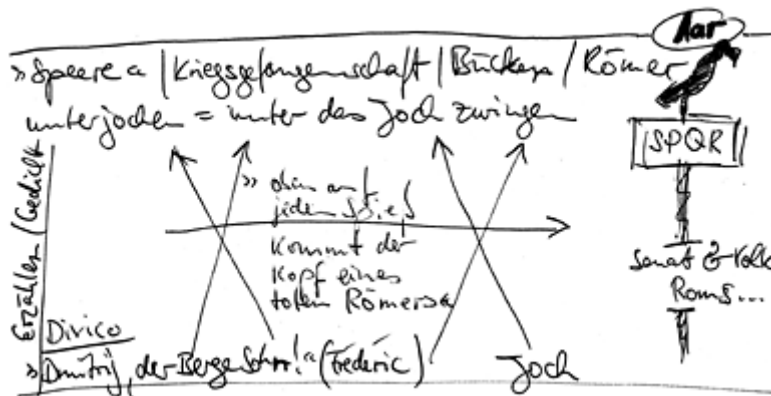 Aar
»Speere« | Kriegsgefangenschaft | Bücken / Römer
unterjochen = unter das Joch zwingen
SPQR
»oben auf
jeden Spieß
kommt der
Kopf eines
toten Römers«
Senat & Volk
Roms...
Erzählen / Gedicht
Divico
»Dmitrij, der Berge Sohn!« (Frédéric)
Joch